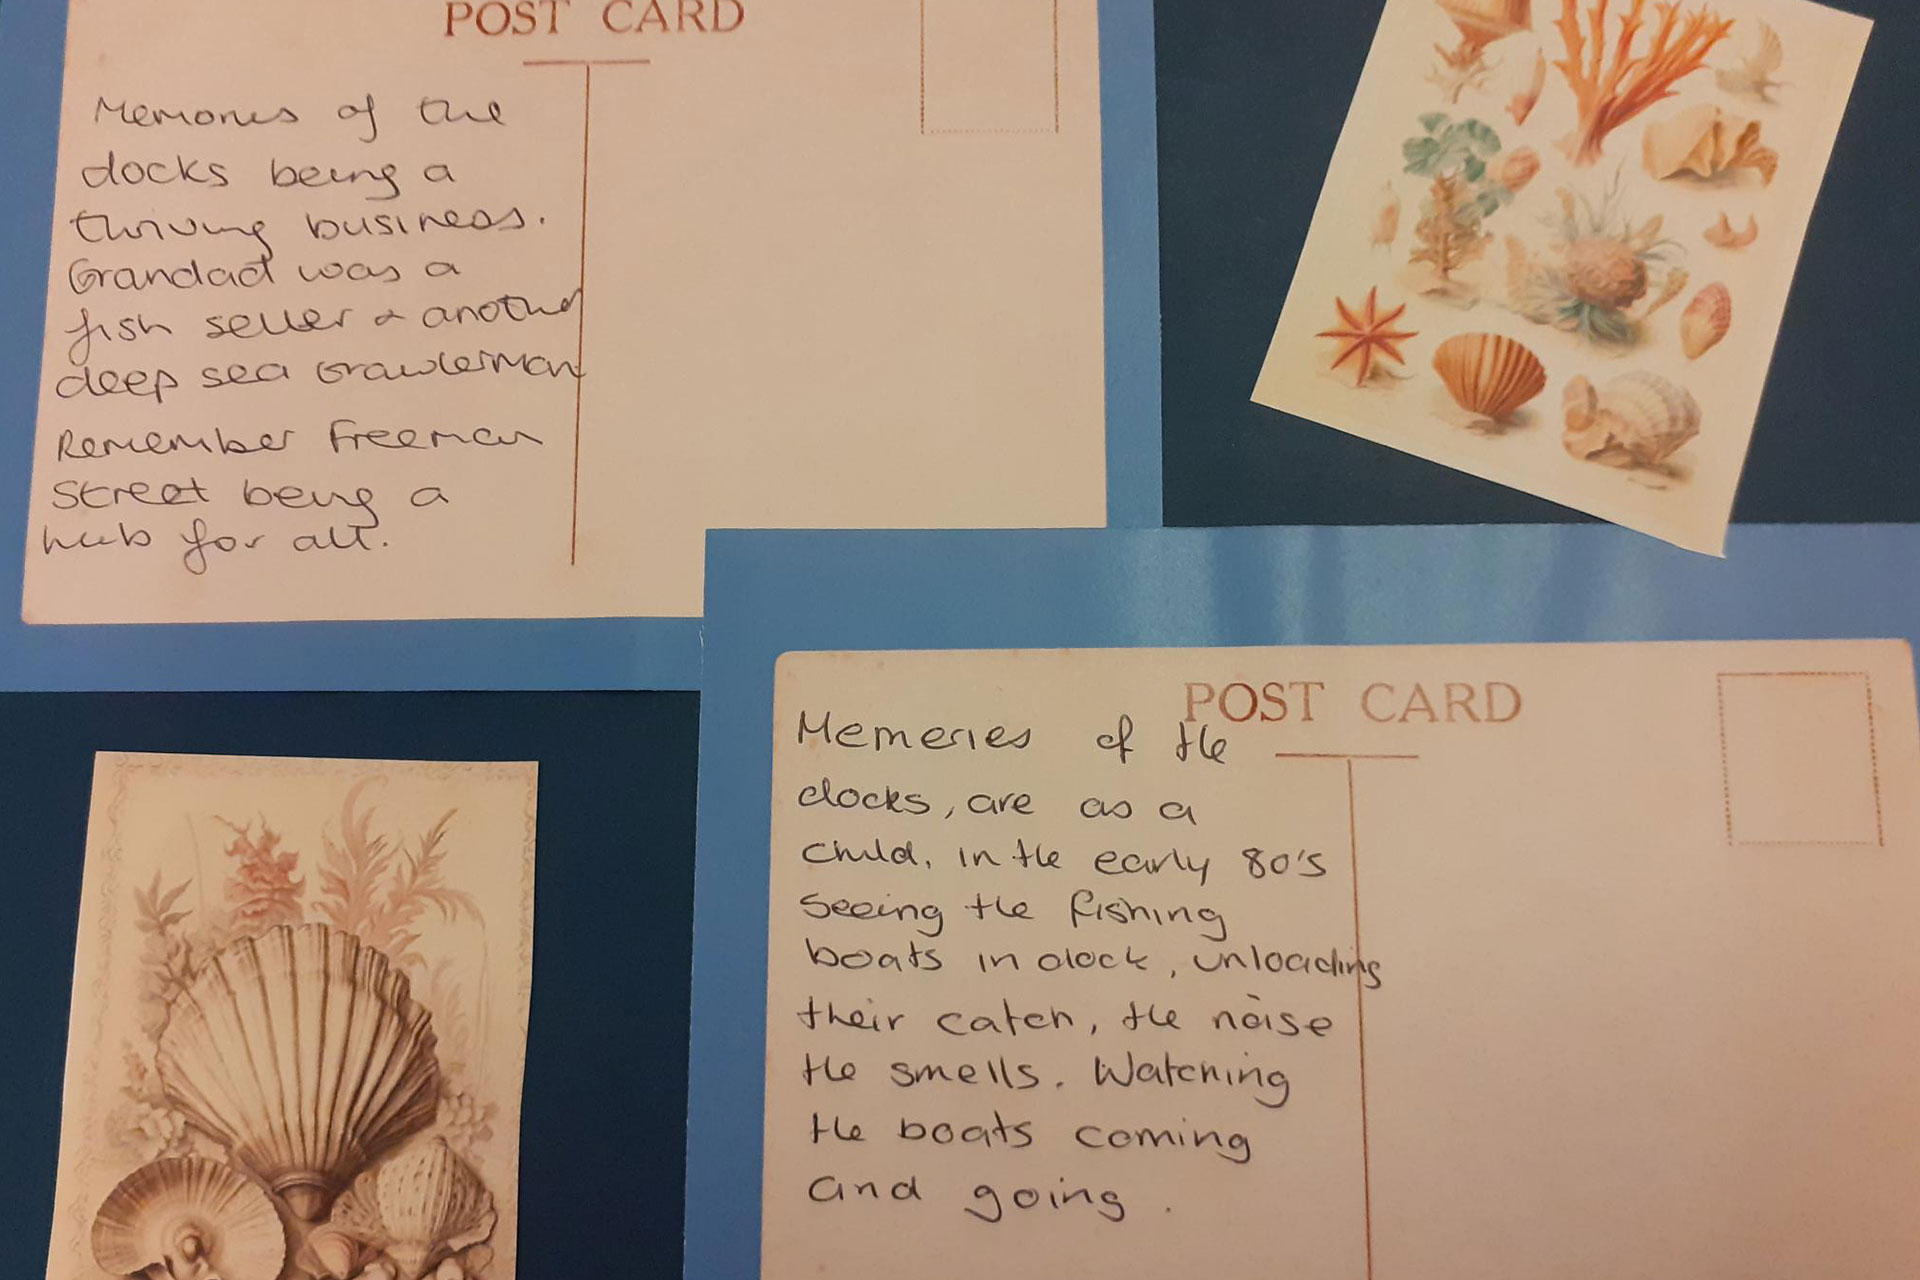 POST CARD
Memories of the
docks being a
thriving business.
Grandad was a
fish seller & another
deep sea trawlerman
Remember Freeman
Street being a
hub for all.
POST CARD
Memories of the
docks, are as a
child, in the early 80's
seeing the fishing
boats in dock, unloading
their catch, the noise
the smells. Watching
the boats coming
and going.